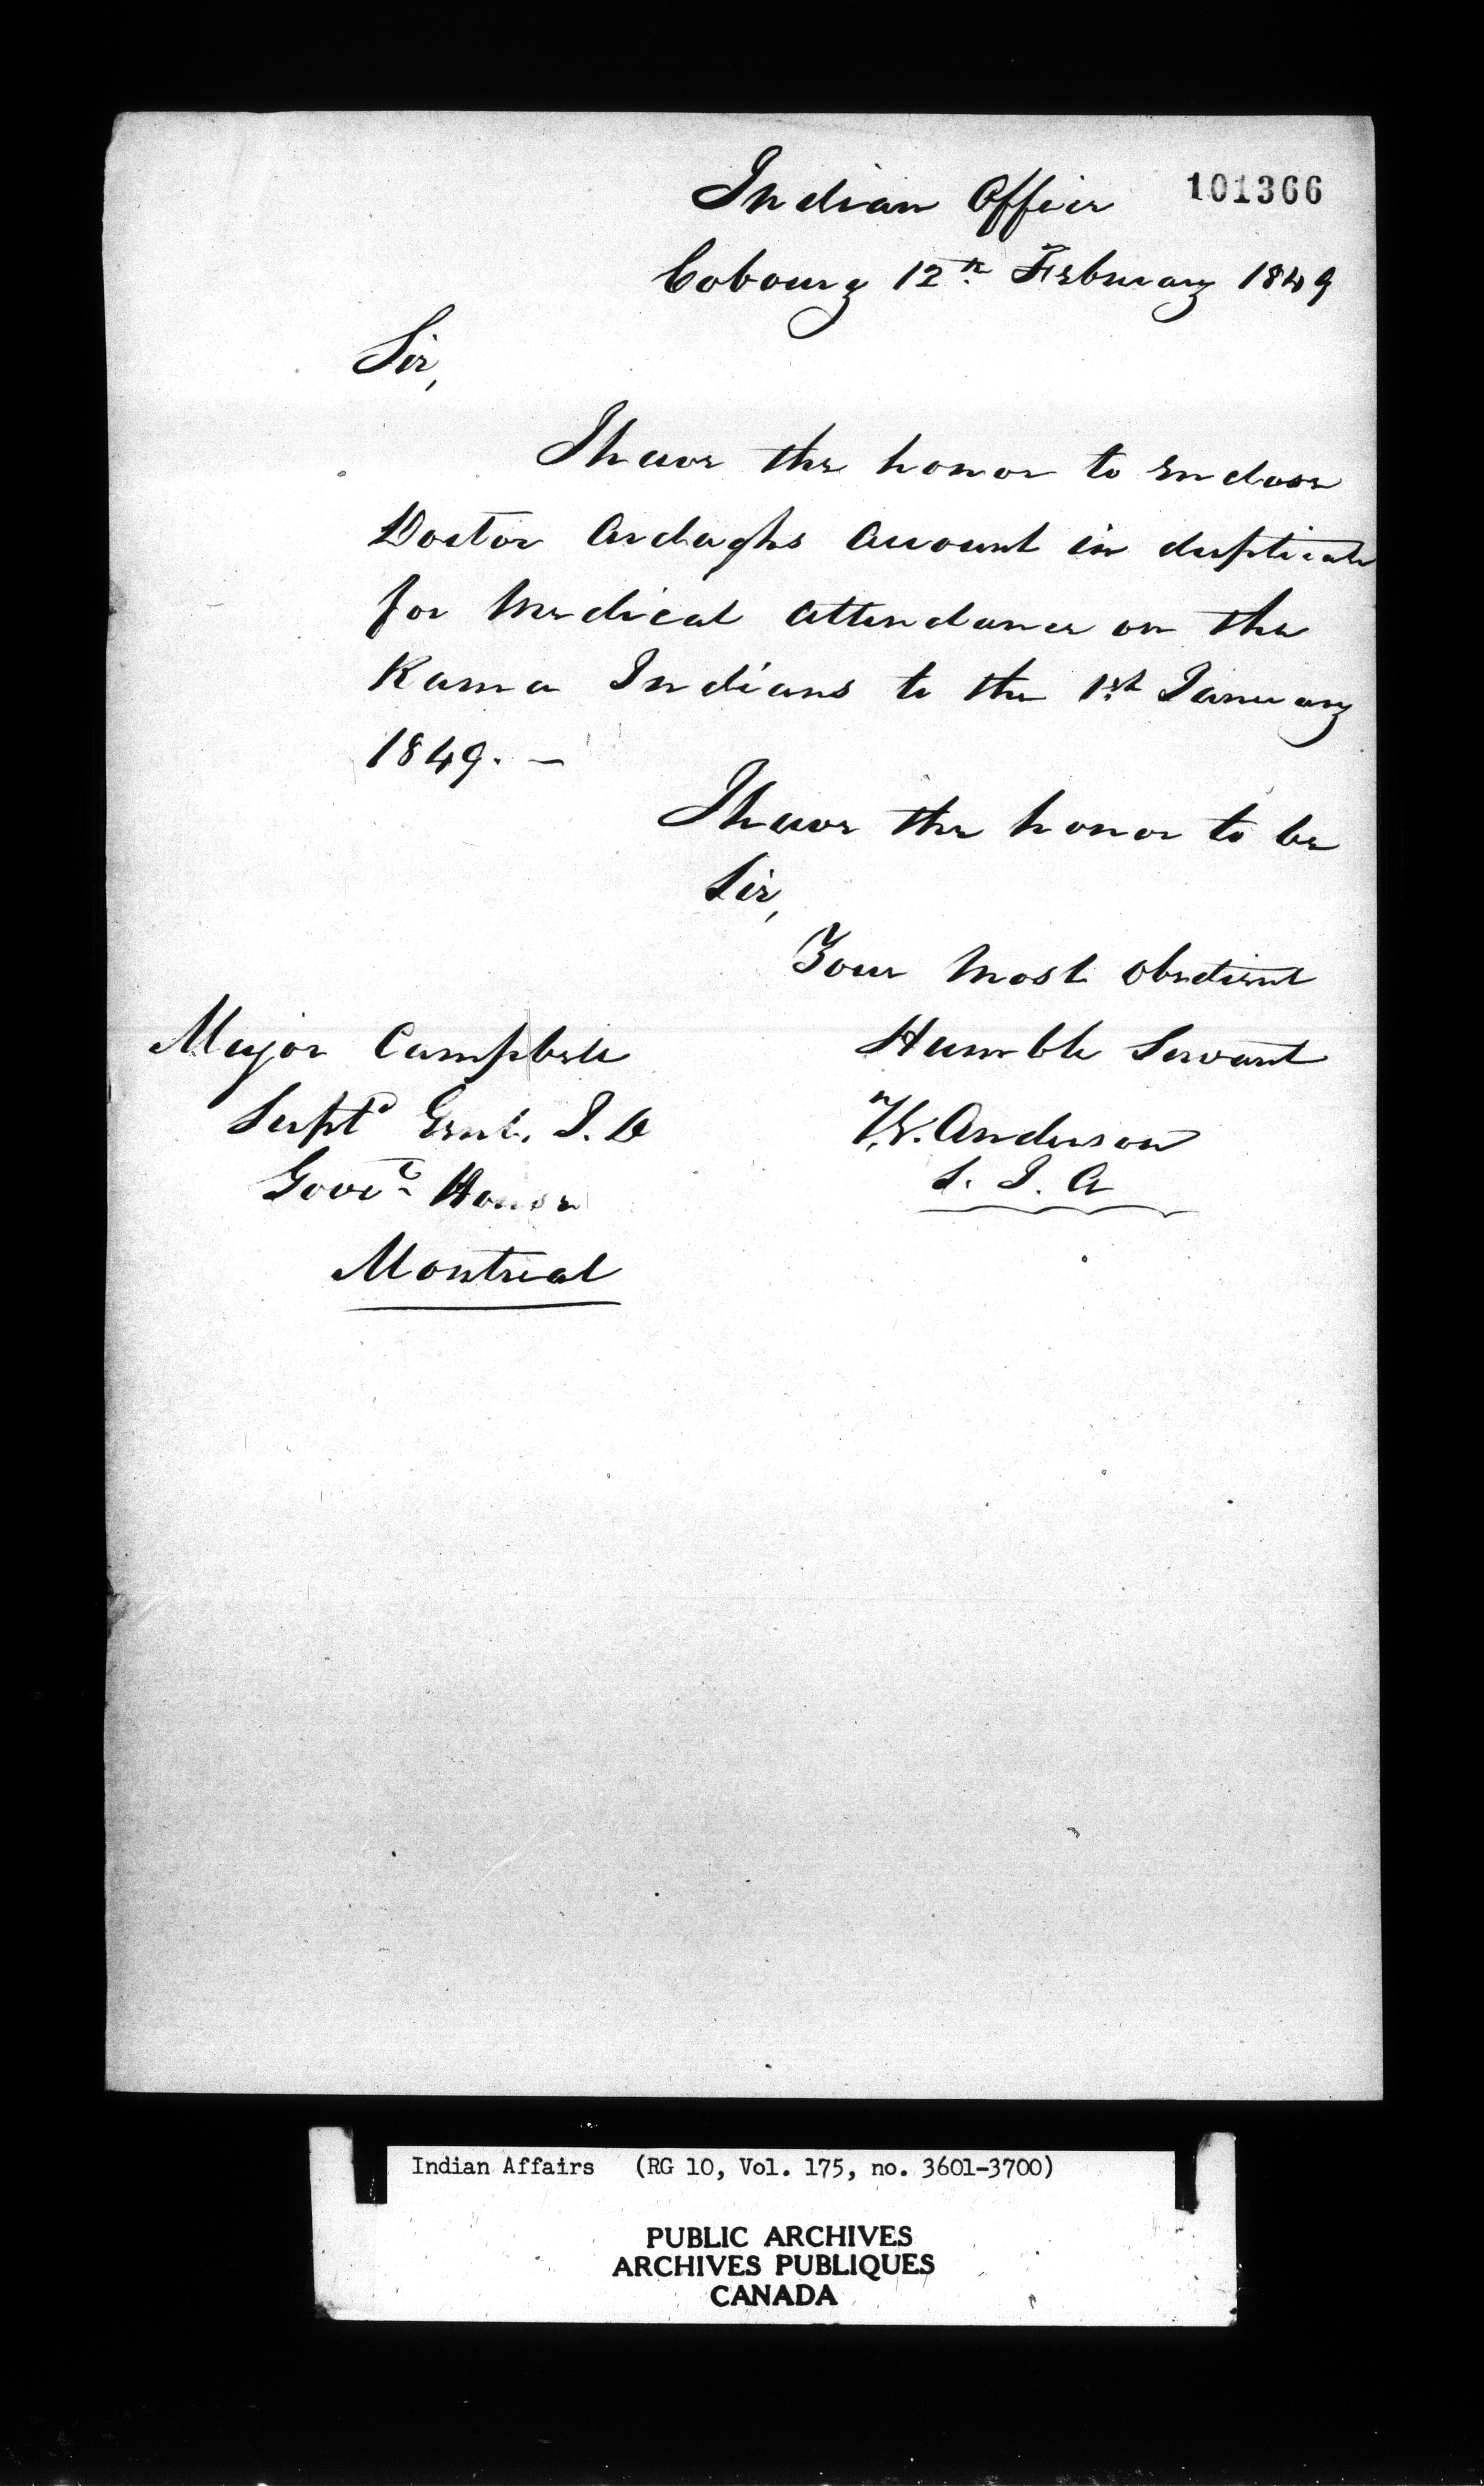 101366
Indian Office
Cobourg 12th February 1849
Sir,
I have the honor to enclose
Doctor Ardaghs account in duplicate
for Medical attendance on the
Rama Indians to the 1st January
1849. —
I have the honor to be
Sir,
Your Most Obedient
Humble Servant
T.G. Anderson
S. I. A
Major Campbell
Supt Genl. I. D
Govt House
Montreal
Indian Affairs (RG 10, Vol. 175, no. 3601-3700)
PUBLIC ARCHIVES
ARCHIVES PUBLIQUES
CANADA